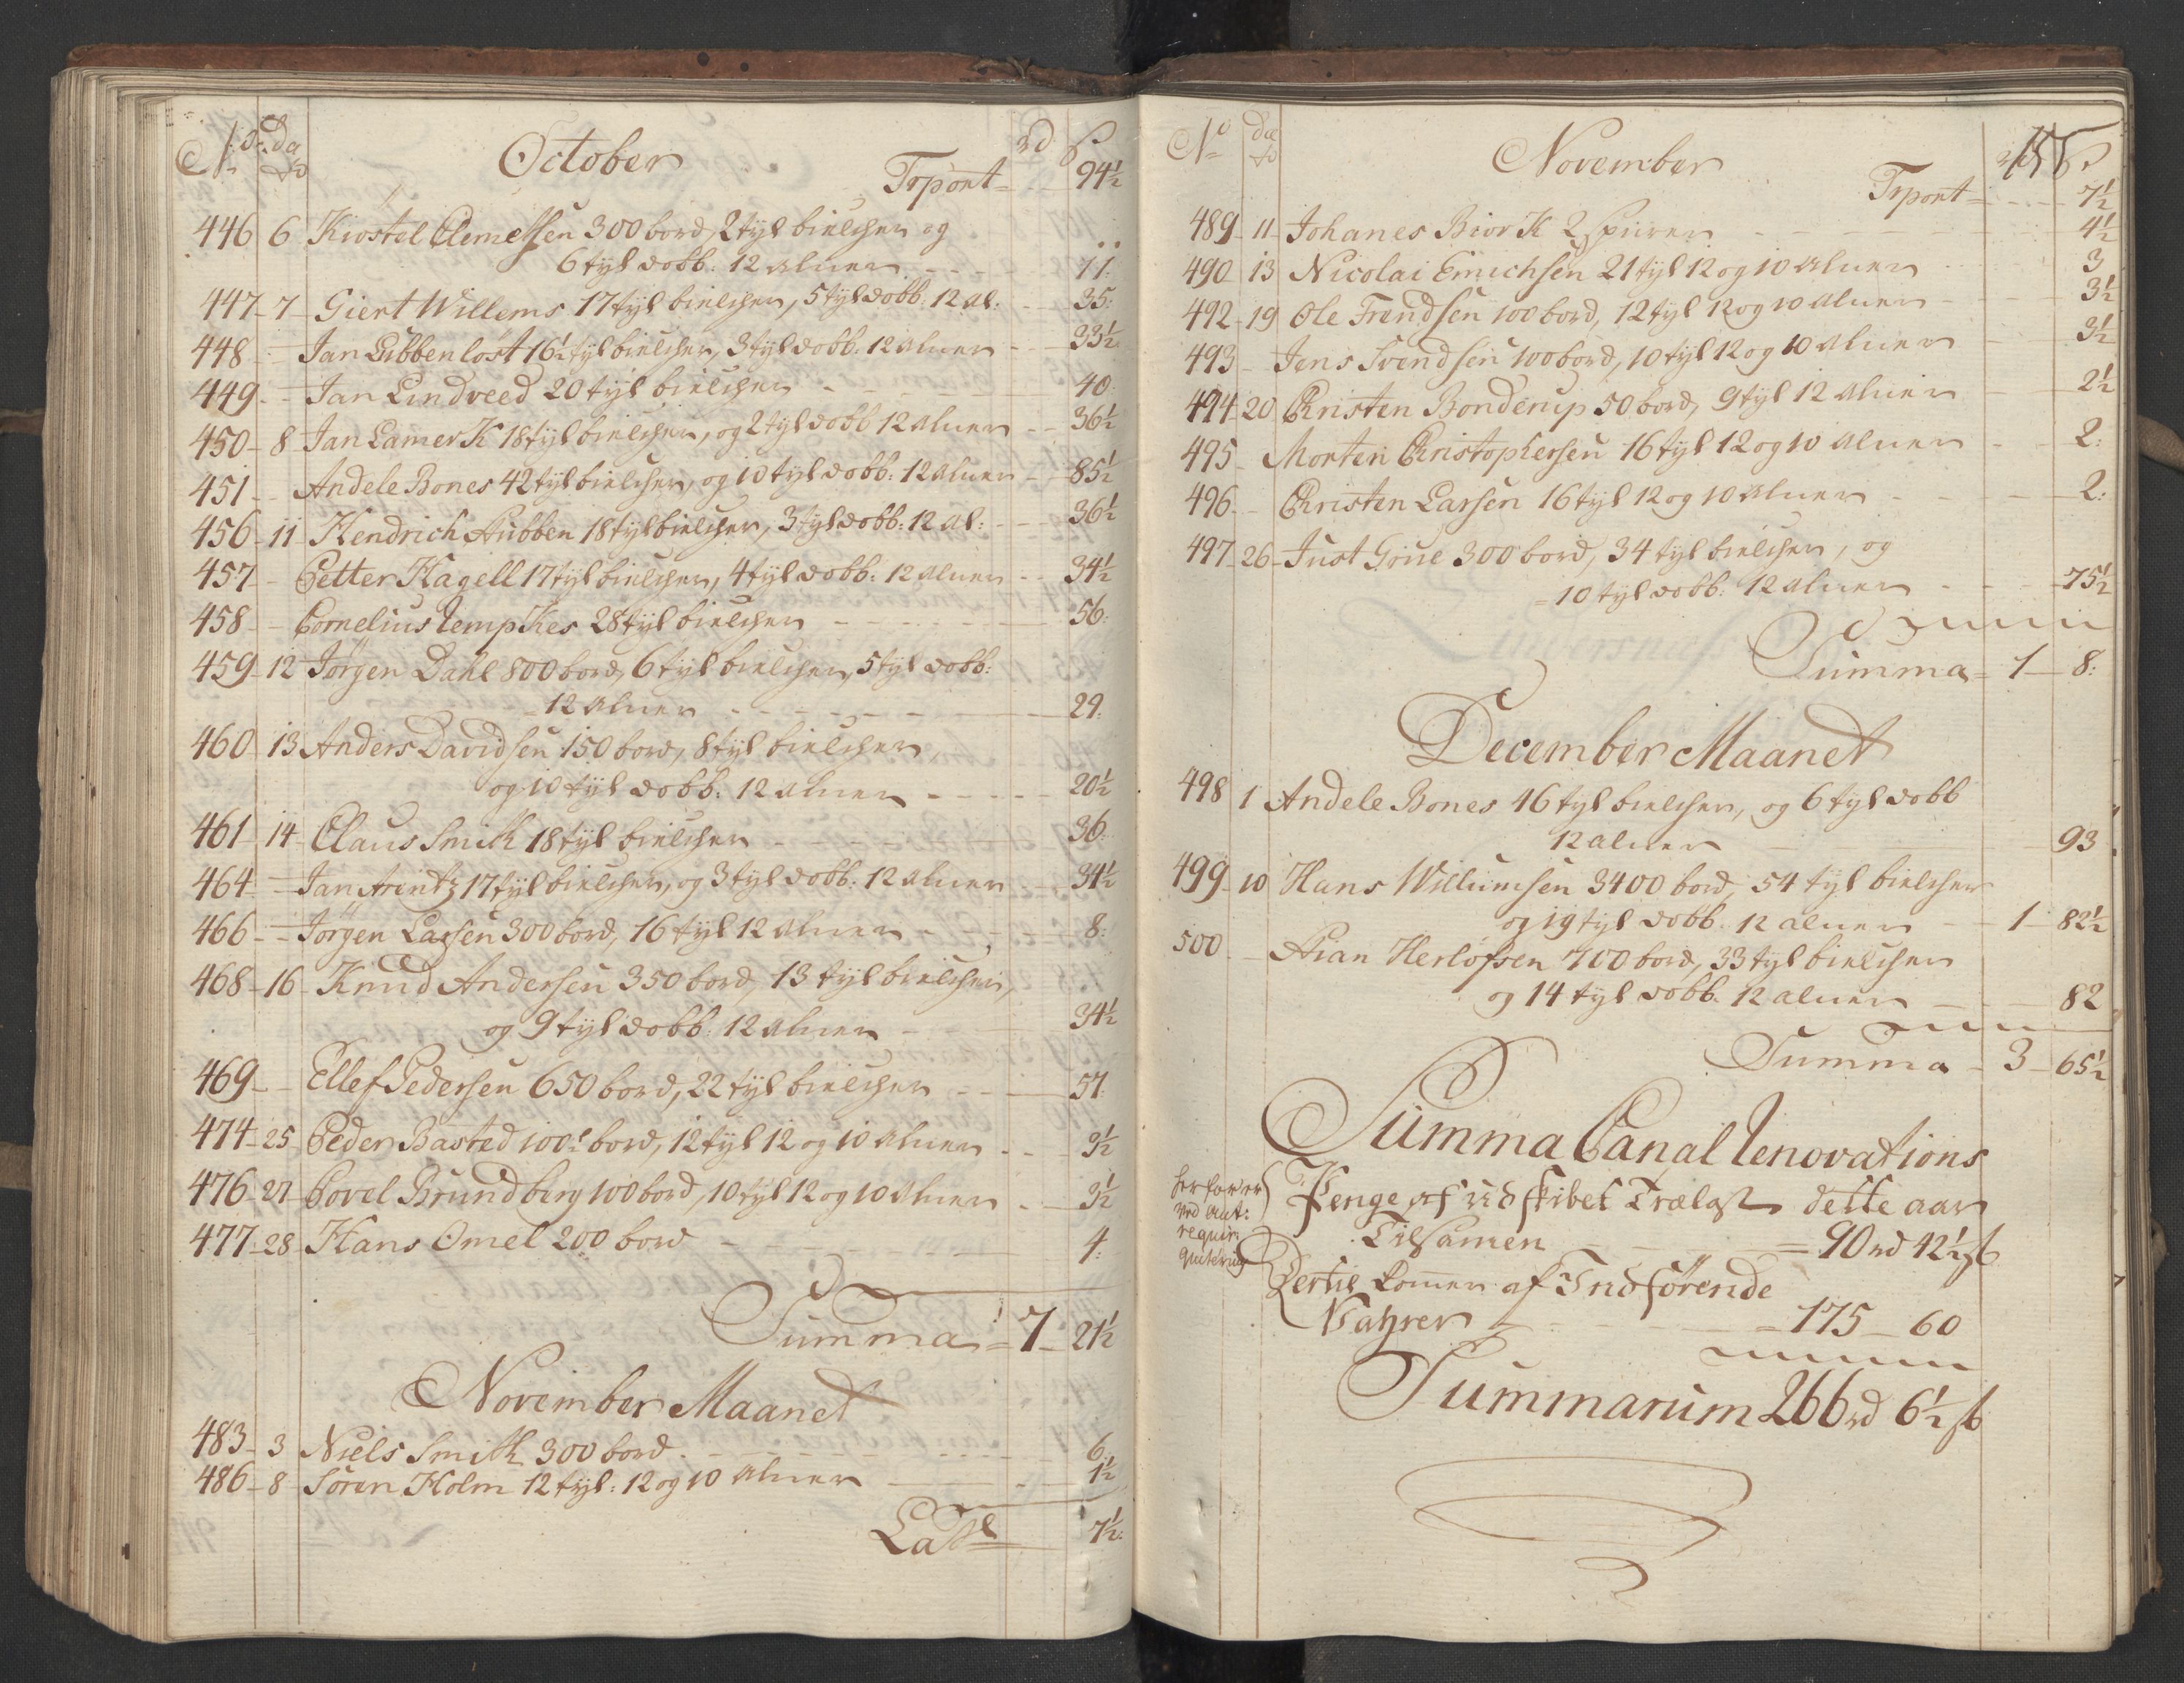 No da October rd ß
Trport 94½
446 6 Kiostel Clemessen 300 bord, 2 tyl bielcher og
6 tyl dobb: 12 alner 11:
447 7 Giert Willems 17 tyl bielcher, 5 tyl dobb: 12 al: 35:
448 Jan Lubben lost 16½ tyl bielcher, 3 tyl dobb: 12 alner 33½
449 Jan Lindveed 20 tyl bielcher 40:
450 8 Jan Lamerk 18 tyl bielcher, og 2 tyl dobb 12 alner 36½
451 Andele Bones 42 tyl bielcher, og 10 tyl dobb: 12 alner 85½
456 11 Hendrich Hubben 18 tyl bielcher, 3 tyl dobb: 12 al: 36½
457 Petter Hagell 17 tyl bielcher, 4 tyl dobb: 12 alner 34½
458 Cornelius Tempkes 28 tyl bielcher 56:
459 12 Jørgen Dahl 800 bord, 6 tyl bielcher, 5 tyl dobb:
12 alner 29:
460 13 Anders Davidsen 150 bord, 8 tyl bielcher
og 10 tyl dobb: 12 alner 20½
461 14 Claus Smith 18 tyl bielcher 36:
464 Jan Arentz 17 tyl bielcher, og 3 tyl dobb: 12 alner 34½
466 Jørgen Larsen 300 bord, 16 tyl 12 alner 8:
468 16 Knud Andersen 350 bord, 13 tyl bielcher,
og 9 tyl dobb: 12 alner 34½
469 Ellef Pedersen 650 bord, 22 tyl bielcher 57:
474 25 Peder Basted 100 bord, 12 tyl 12 og 10 alner 3½
476 27 Povel Brundberg 100 bord, 10 tyl 12 og 10 alner 3½
477 28 Hans Omel 200 bord 4:
Summa 7 21½
November Maanet
483 3 Niels Smith 300 bord 6:
486 8 Søren Holm 12 tyl: 12 og 10 alner 1½
Latl 7½:
No da November 155
Trport 7½
489 11 Johanes Biork 2 spiirer 4½
490 13 Nicolai Emichsen 21 tyl 12 og 10 alner 3
492 19 Ole Trendsen 100 bord, 12 tyl 12 og 10 alner 3½
493 Jens Svendsen 100 bord, 10 tyl 12 og 10 alner 3½
494 20 Christen Bonderup 50 bord, 9 tyl 12 alner 2½
495 Morten Christophersen 16 tyl 12 og 10 alner 2:
496 Christen Larsen 16 tyl 12 og 10 alner 2:
497 26 Just Goue 300 bord, 34 tyl bielcher, og
10 tyl dobb: 12 alner 75½
Summa 1 8:
December Maanet
498 1 Andele Bones 46 tyl bielcher, og 6 tyl dobb
12 alner 93
499 10 Hans Willumsen 3400 bord, 54 tyl bielcher
og 19 tyl dobb. 12 alner 1 82½
500 Arian Herlofsen 700 bord, 33 tyl bielcher
og 14 tyl dobb. 12 alner 82
Summa 3 65½
Summa Canal Renovations
Penge af udskibet Trælast dette aar
Tilsamen 90 rd 42½ ß
Dertil komer af Indførende
Vahrer 175 60
Summarum 266 rd 6½ ß